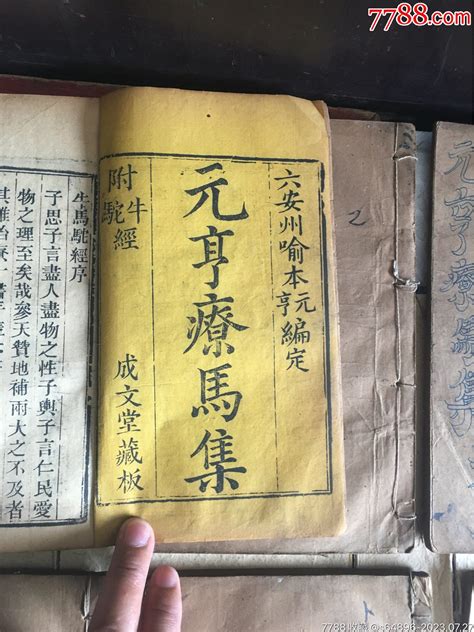 7788.com
六安州喻本元亨編定
元亨療馬集
附牛駝經
成文堂藏板
牛馬駝經序
子思子言盡人盡物之性子輿子言仁民愛
物之理至矣哉參天贊地補雨大之不及者
7788收藏@s64896-2023.07.27